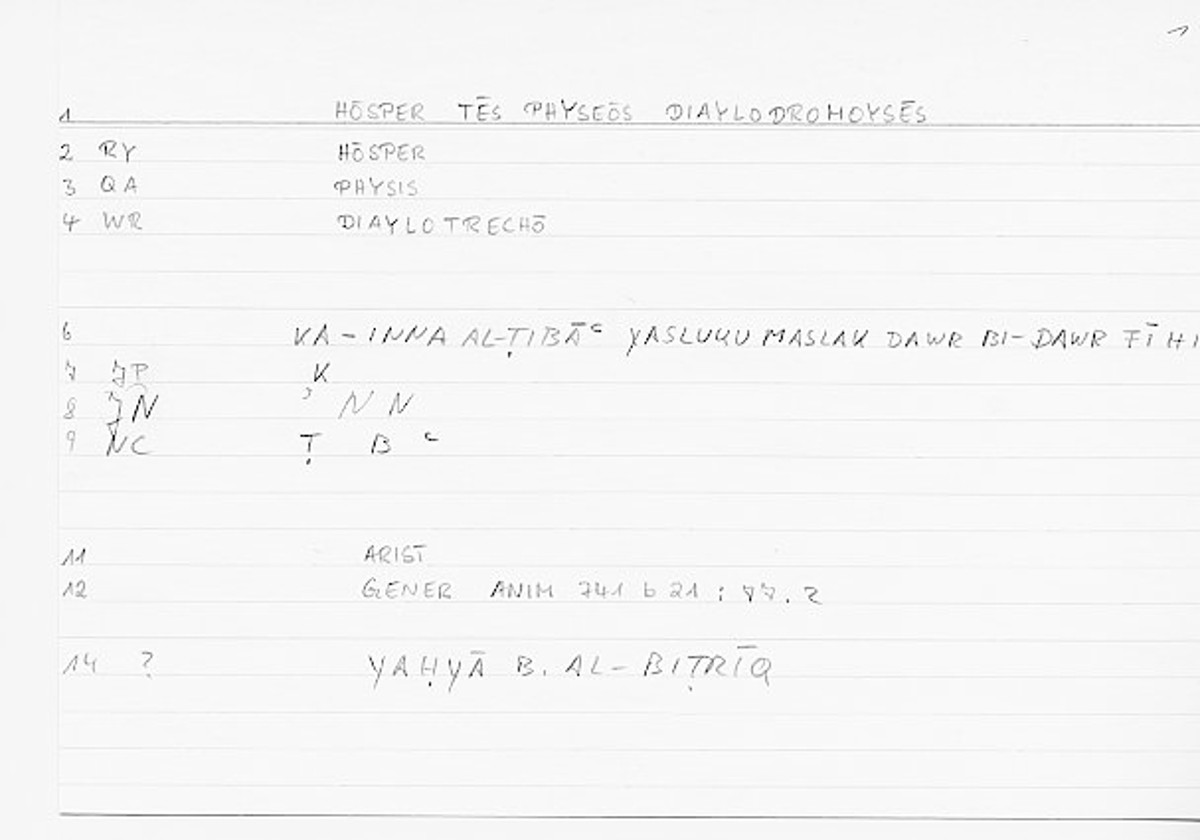 1
1 HŌSPER TĒS PHYSEŌS DIAYLODROMOYSĒS
2 RY HŌSPER
3 QA PHYSIS
4 WR DIAYLOTRECHŌ
6 KA-INNA AL-ṬIBĀʿ YASLUKU MASLAK DAWR BI-DAWR FĪHI
7 JP K
8 JN ʾ N N
9 NC Ṭ B ʿ
11 ARIST
12 GENER ANIM 741 b 21 ; 77.2
14 ? YAḤYĀ B. AL-BIṬRĪQ